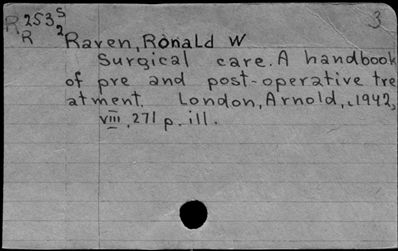 R 253 S 3
R 2 Raven, Ronald W
Surgical care. A handbook
of pre and post-operative tre
atment. London, Arnold, c1942,
viii, 271 p. ill.